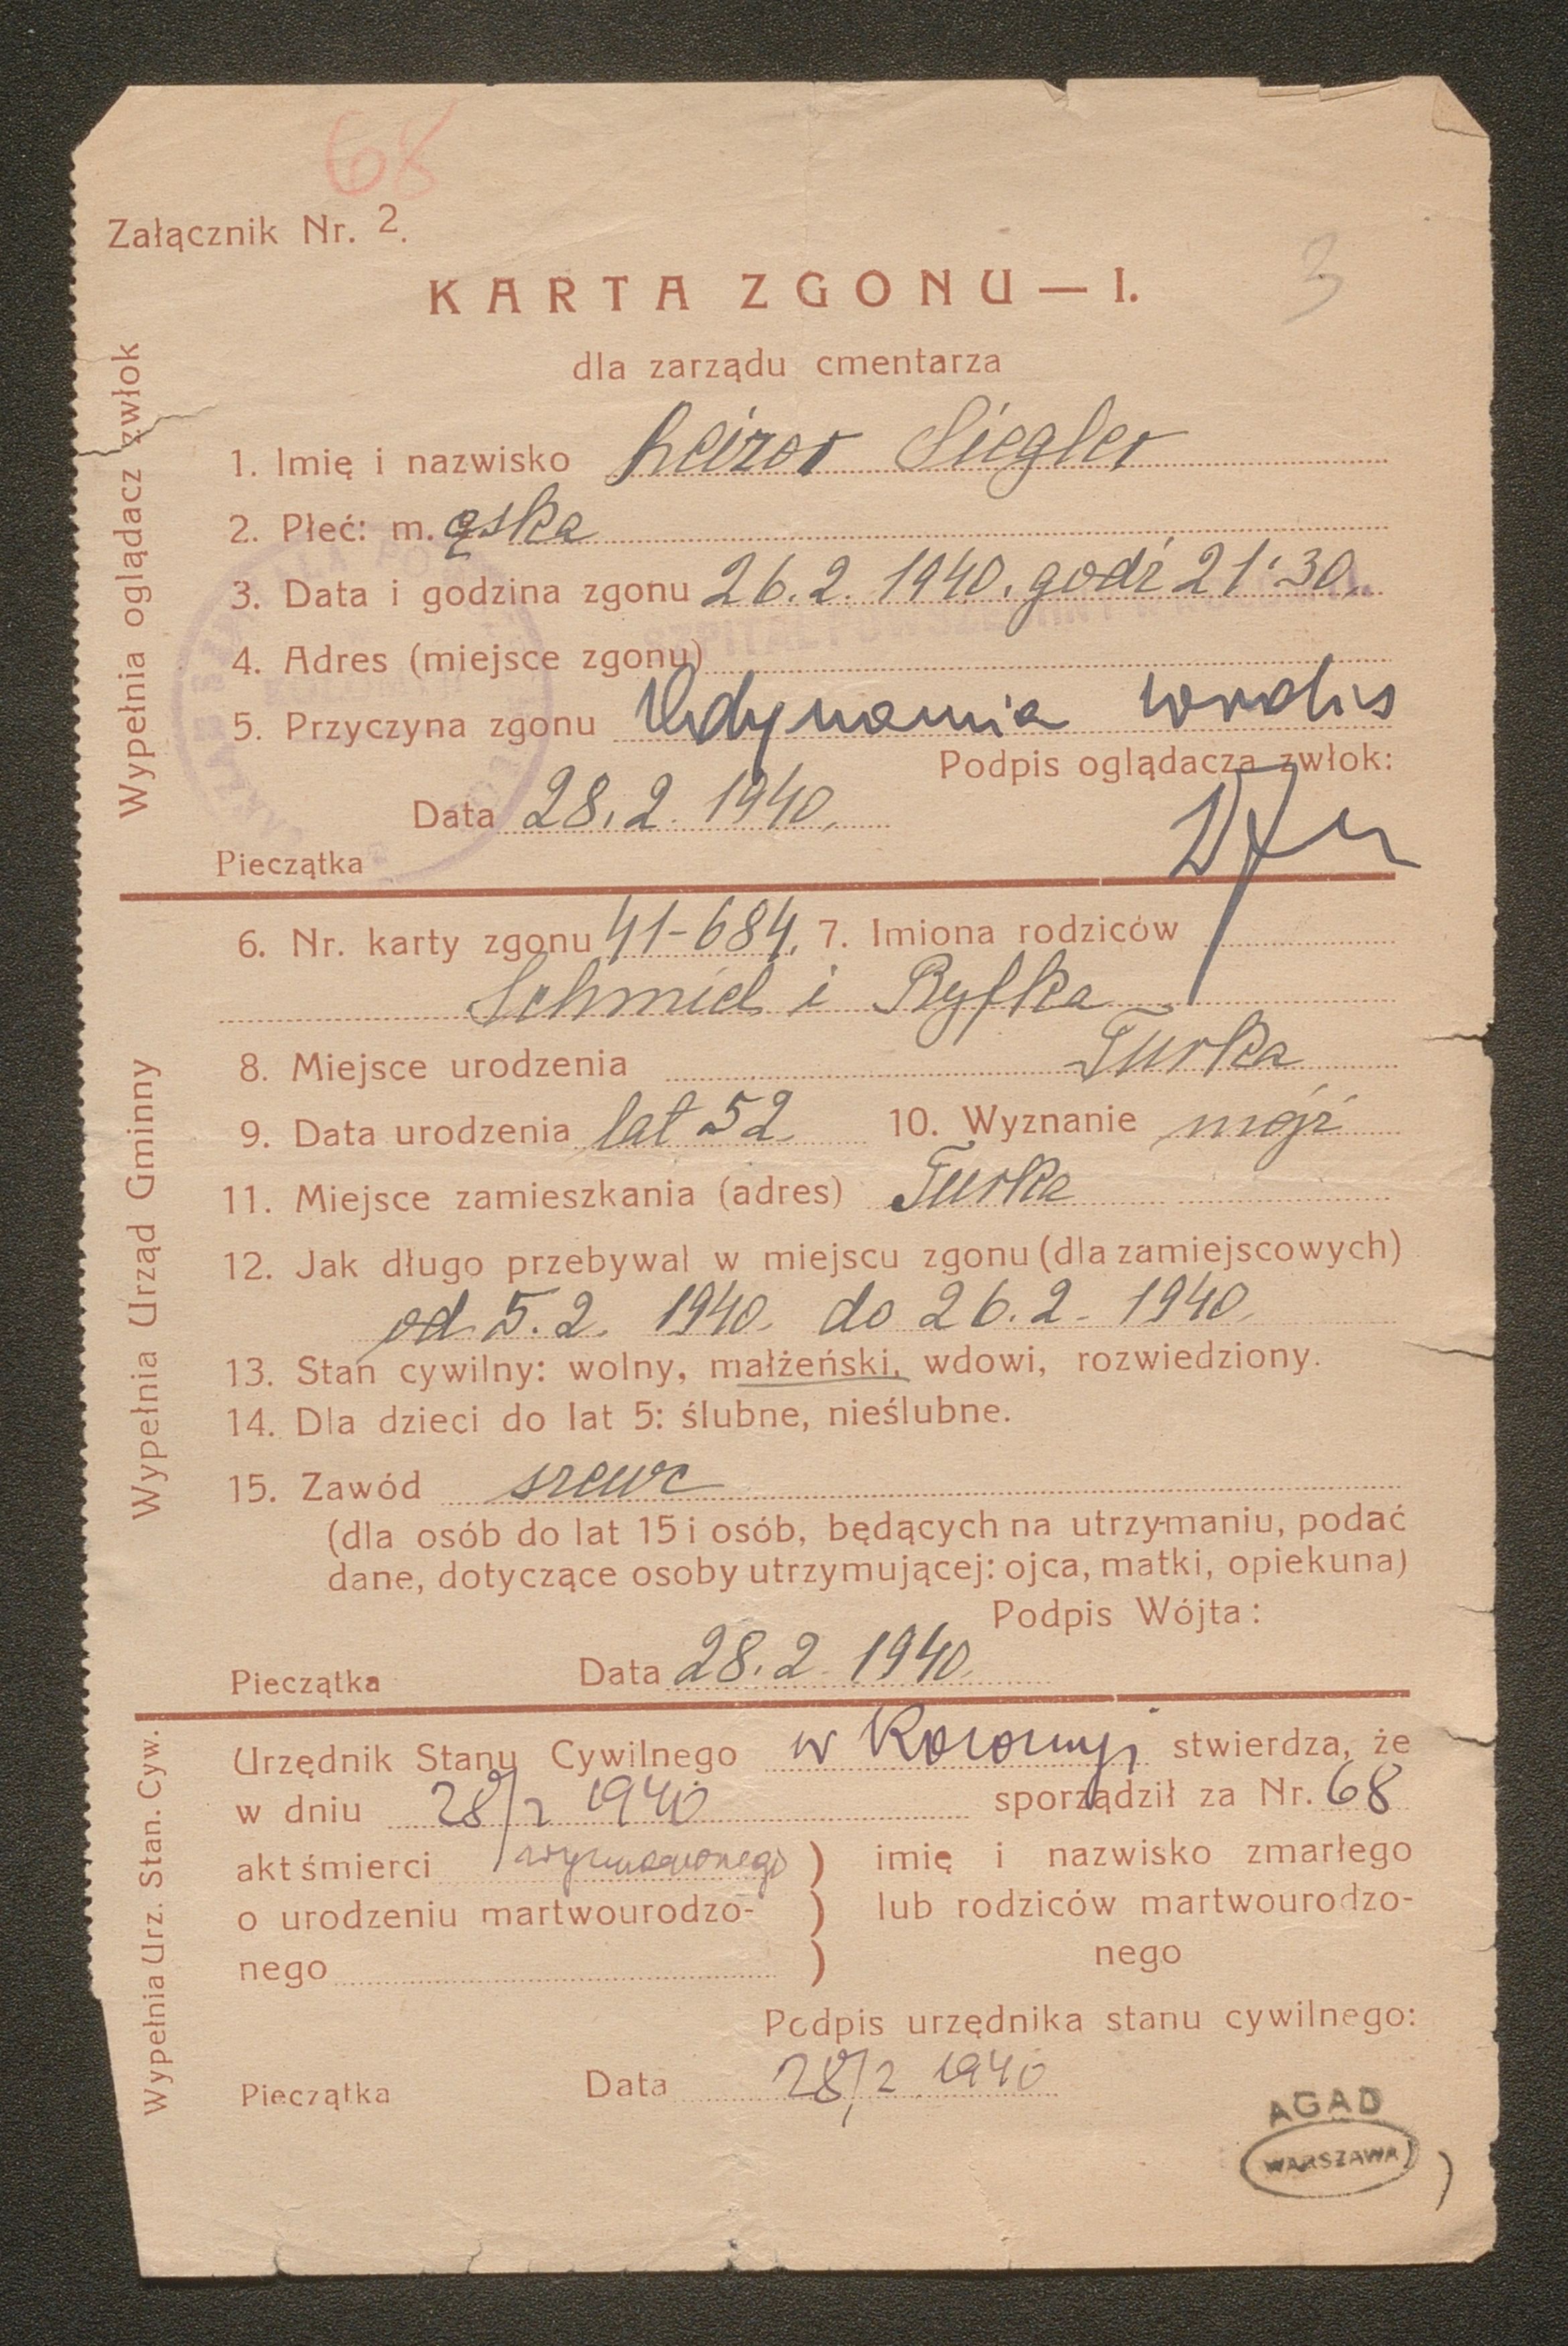 68
Załącznik Nr. 2.
3
KARTA ZGONU — I.
dla zarządu cmentarza
Wypełnia oglądacz zwłok
1. Imię i nazwisko Leizor Siegler
2. Płeć: m. ąska
3. Data i godzina zgonu 26.2. 1940. godź 21'30
SZPITAL POWSZECHNY
4. Adres (miejsce zgonu)
5. Przyczyna zgonu Adynamia cordis
Podpis oglądacza zwłok:
Data 28.2. 1940.
Pieczątka
Wypełnia Urząd Gminny
6. Nr. karty zgonu 41-684. 7. Imiona rodziców
Schmiel i Ryfka
8. Miejsce urodzenia Turka
9. Data urodzenia lat 52 10. Wyznanie mojż
11. Miejsce zamieszkania (adres) Turka
12. Jak długo przebywal w miejscu zgonu (dla zamiejscowych)
od 5.2. 1940. do 26.2. 1940.
13. Stan cywilny: wolny, małżeński, wdowi, rozwiedziony.
14. Dla dzieci do lat 5: ślubne, nieślubne.
15. Zawód szewc
(dla osób do lat 15 i osób, będących na utrzymaniu, podać
dane, dotyczące osoby utrzymującej: ojca, matki, opiekuna)
Podpis Wójta:
Pieczątka Data 28.2. 1940.
Wypełnia Urz. Stan. Cyw.
Urzędnik Stanu Cywilnego w Kołomyji stwierdza, że
w dniu 28/2 1940 sporządził za Nr. 68
akt śmierci wymienionego ) imię i nazwisko zmarłego
o urodzeniu martwourodzo- ) lub rodziców martwourodzo-
nego ) nego
Podpis urzędnika stanu cywilnego:
Pieczątka Data 28/2 1940
AGAD
WARSZAWA